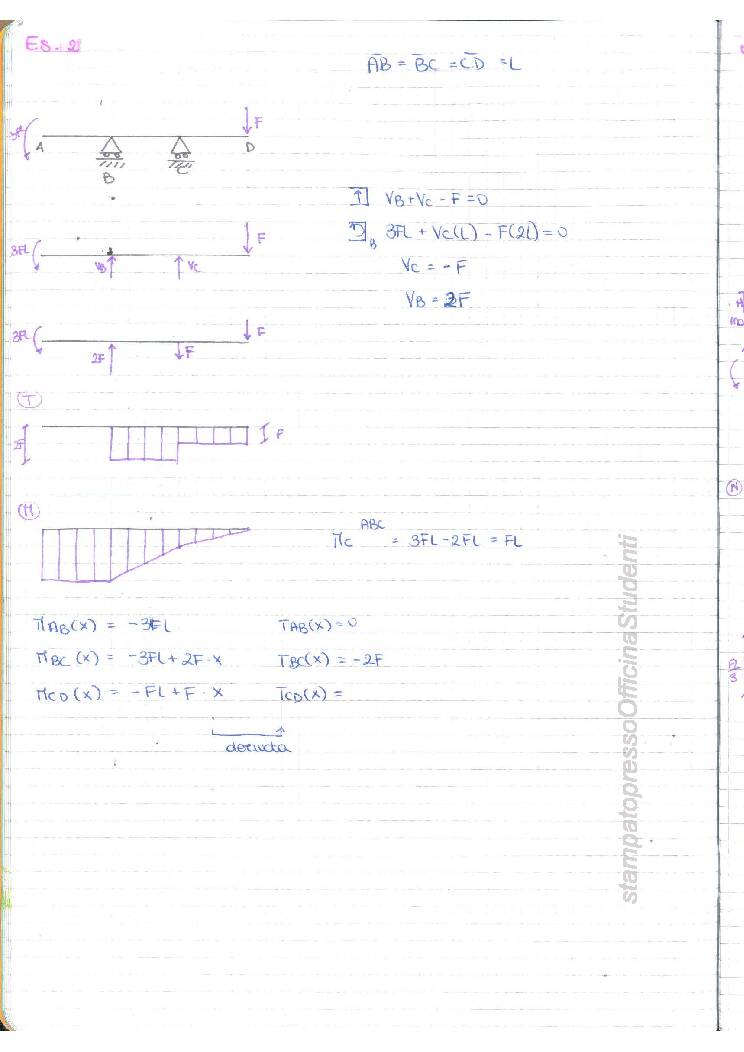 ES. 2
AB = BC = CD = L
3FL
F
A
B
C
D
VB + VC - F = 0
B 3FL + VC(L) - F(2L) = 0
VC = -F
VB = 2F
3FL
VB
VC
F
3FL
2F
F
F
T
2F
F
M
MC ABC = 3FL - 2FL = FL
MAB(x) = -3FL
TAB(x) = 0
MBC(x) = -3FL + 2F · x
TBC(x) = -2F
MCD(x) = -FL + F · x
TCD(x) =
derivata
stampatopressoOfficinaStudenti
N
FL
3